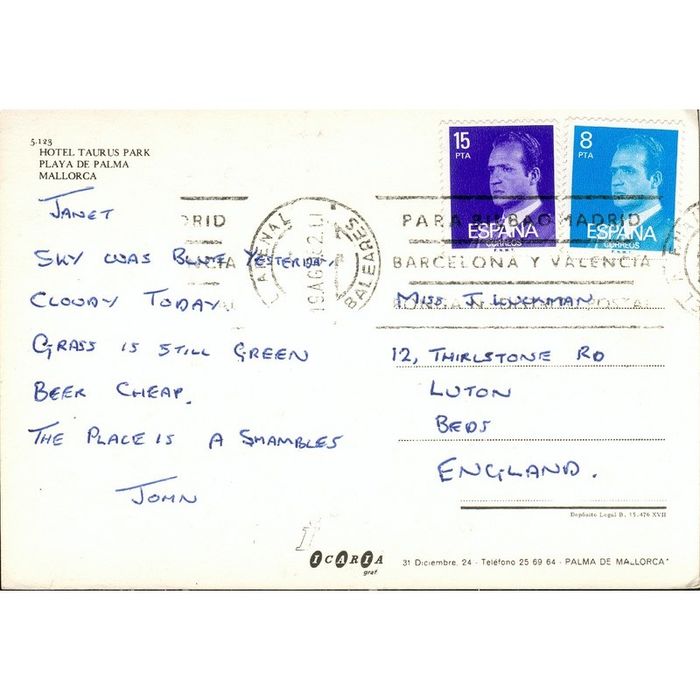 5.123
HOTEL TAURUS PARK
PLAYA DE PALMA
MALLORCA
JANET
SKY WAS BLUE YESTERDAY,
CLOUDY TODAY
GRASS IS STILL GREEN
BEER CHEAP.
THE PLACE IS A SHAMBLES
JOHN
15
PTA
ESPAÑA
CORREOS
8
PTA
ESPAÑA
CORREOS
ARENAL
BALEARES
PARA BILBAO MADRID
BARCELONA Y VALENCIA
MISS J. LUCKMAN
12, THIRLSTONE RD
LUTON
BEDS
ENGLAND.
Depósito Legal B. 15.476 XVII
ICARIA
graf.
31 Diciembre, 24 - Teléfono 25 69 64 - PALMA DE MALLORCA